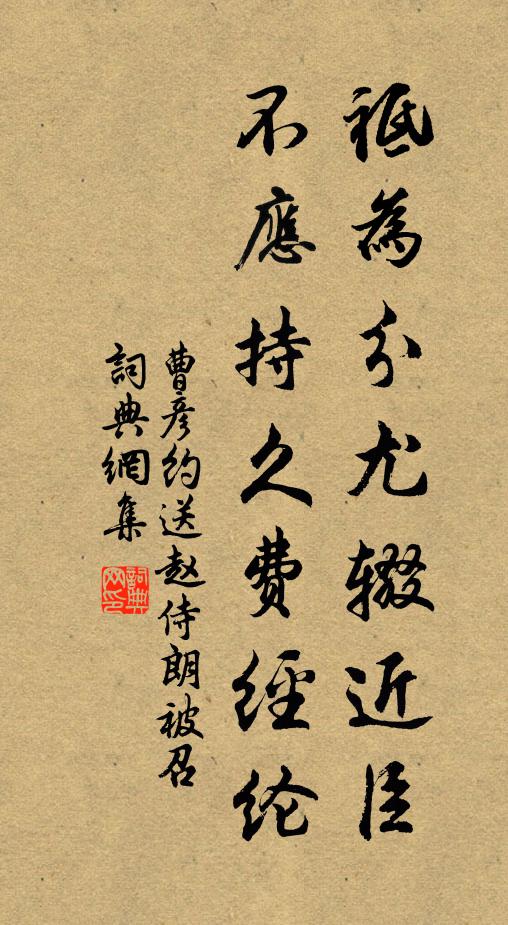 祗為分尤辍近臣
不應持久費經纶
曹彦約送赵侍朗被召
詞典網集
詞典網印